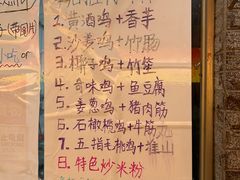 1. 黄酒鸡+香芋
2. 沙姜鸡+竹肠
3. 椰子鸡+竹笙
4. 奇味鸡+鱼豆腐
5. 姜葱鸡+猪肉筋
6. 石橄榄鸡+牛筋丸
7. 五指毛桃鸡+淮山
日. 特色炒米粉
or